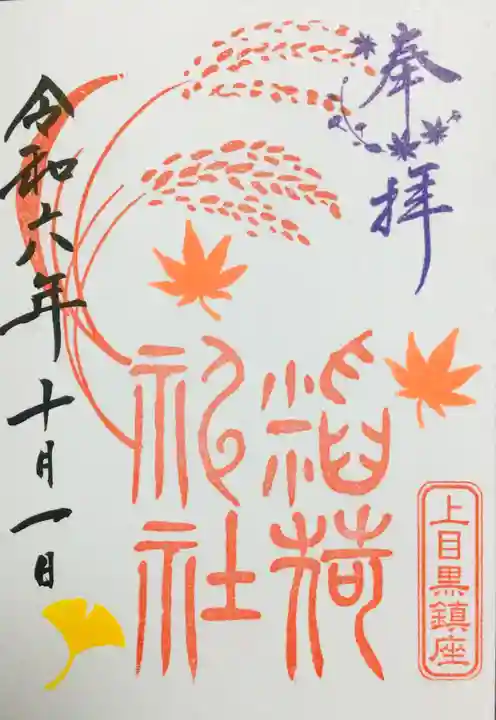 奉拝
稲荷
祀社
上目黒鎮座
令和六年十月一日